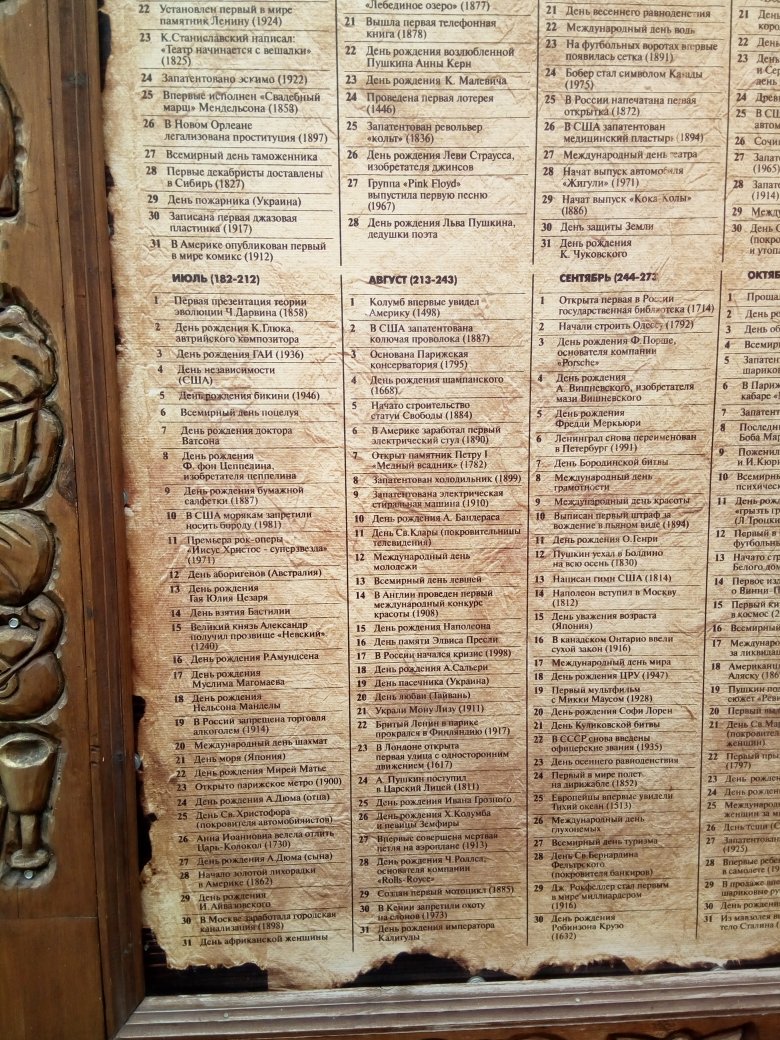 22 Установлен первый в мире
памятник Ленину (1924)
23 К.Станиславский написал:
«Театр начинается с вешалки»
(1825)
24 Запатентовано эскимо (1922)
25 Впервые исполнен «Свадебный
марш» Мендельсона (1858)
26 В Новом Орлеане
легализована проституция (1897)
27 Всемирный день таможенника
28 Первые декабристы доставлены
в Сибирь (1827)
29 День пожарника (Украина)
30 Записана первая джазовая
пластинка (1917)
31 В Америке опубликован первый
в мире комикс (1912)
«Лебединое озеро» (1877)
21 Вышла первая телефонная
книга (1878)
22 День рождения возлюбленной
Пушкина Анны Керн
23 День рождения К. Малевича
24 Проведена первая лотерея
(1446)
25 Запатентован револьвер
«кольт» (1836)
26 День рождения Леви Страусса,
изобретателя джинсов
27 Группа «Pink Floyd»
выпустила первую песню
(1967)
28 День рождения Льва Пушкина,
дедушки поэта
21 День весеннего равноденствия
22 Международный день воды
23 На футбольных воротах впервые
появилась сетка (1891)
24 Бобер стал символом Канады
(1975)
25 В России напечатана первая
открытка (1872)
26 В США запатентован
медицинский пластырь (1894)
27 Международный день театра
28 Начат выпуск автомобиля
«Жигули» (1971)
29 Начат выпуск «Кока-Колы»
(1886)
30 День защиты Земли
31 День рождения
К. Чуковского
21 День
22 День
23 День
и Сер
день
24 Древ
25 В США
автом
26 Сочи
27 Запат
(1965)
28 Запат
(1914)
29 Между
30 День С
(покро
и утоп
ИЮЛЬ (182-212)
1 Первая презентация теории
эволюции Ч.Дарвина (1858)
2 День рождения К.Глюка,
автрийского композитора
3 День рождения ГАИ (1936)
4 День независимости
(США)
5 День рождения бикини (1946)
6 Всемирный день поцелуя
7 День рождения доктора
Ватсона
8 День рождения
Ф. фон Цеппелина,
изобретателя цеппелина
9 День рождения бумажной
салфетки (1887)
10 В США морякам запретили
носить бороду (1981)
11 Премьера рок-оперы
«Иисус Христос - суперзвезда»
(1971)
12 День аборигенов (Австралия)
13 День рождения
Гая Юлия Цезаря
14 День взятия Бастилии
15 Великий князь Александр
получил прозвище «Невский»
(1240)
16 День рождения Р.Амундсена
17 День рождения
Муслима Магомаева
18 День рождения
Нельсона Манделы
19 В России запрещена торговля
алкоголем (1914)
20 Международный день шахмат
21 День моря (Япония)
22 День рождения Мирей Матье
23 Открыто парижское метро (1900)
24 День рождения А.Дюма (отца)
25 День Св.Христофора
(покровителя автомобилистов)
26 Анна Иоанновна велела отлить
Царь-Колокол (1730)
27 День рождения А.Дюма (сына)
28 Начало золотой лихорадки
в Америке (1862)
29 День рождения
И.Айвазовского
30 В Москве заработала городская
канализация (1898)
31 День африканской женщины
АВГУСТ (213-243)
1 Колумб впервые увидел
Америку (1498)
2 В США запатентована
колючая проволока (1887)
3 Основана Парижская
консерватория (1795)
4 День рождения шампанского
(1668)
5 Начато строительство
статуи Свободы (1884)
6 В Америке заработал первый
электрический стул (1890)
7 Открыт памятник Петру I
«Медный всадник» (1782)
8 Запатентован холодильник (1899)
9 Запатентована электрическая
стиральная машина (1910)
10 День рождения А. Бандераса
11 День Св.Клары (покровительницы
телевидения)
12 Международный день
молодежи
13 Всемирный день левшей
14 В Англии проведен первый
международный конкурс
красоты (1908)
15 День рождения Наполеона
16 День памяти Элвиса Пресли
17 В России начался кризис (1998)
18 День рождения А.Сальери
19 День пасечника (Украина)
20 День любви (Тайвань)
21 Украли Мону Лизу (1911)
22 Бритый Ленин в парике
прокрался в Финляндию (1917)
23 В Лондоне открыта
первая улица с односторонним
движением (1617)
24 А. Пушкин поступил
в Царский Лицей (1811)
25 День рождения Ивана Грозного
26 День рождения Х.Колумба
и певицы Земфиры
27 Впервые совершена мертвая
петля на аэроплане (1913)
28 День рождения Ч.Роллса,
основателя компании
«Rolls-Royce»
29 Создан первый мотоцикл (1885)
30 В Кении запретили охоту
на слонов (1973)
31 День рождения императора
Калигулы
СЕНТЯБРЬ (244-273
1 Открыта первая в России
государственная библиотека (1714)
2 Начали строить Одессу (1792)
3 День рождения Ф.Порше,
основателя компании
«Porsche»
4 День рождения
А. Вишневского, изобретателя
мази Вишневского
5 День рождения
Фредди Меркьюри
6 Ленинград снова переименован
в Петербург (1991)
7 День Бородинской битвы
8 Международный день
грамотности
9 Международный день красоты
10 Выписан первый штраф за
вождение в пьяном виде (1894)
11 День рождения О.Генри
12 Пушкин уехал в Болдино
на всю осень (1830)
13 Написан гимн США (1814)
14 Наполеон вступил в Москву
(1812)
15 День уважения возраста
(Япония)
16 В канадском Онтарио ввели
сухой закон (1916)
17 Международный день мира
18 День рождения ЦРУ (1947)
19 Первый мультфильм
с Микки Маусом (1928)
20 День рождения Софи Лорен
21 День Куликовской битвы
22 В СССР снова введены
офицерские звания (1935)
23 День осеннего равноденствия
24 Первый в мире полет
на дирижабле (1852)
25 Европейцы впервые увидели
Тихий океан (1513)
26 Международный день
глухонемых
27 Всемирный день туризма
28 День Св.Бернардина
Фельтрского
(покровителя банкиров)
29 Дж. Рокфеллер стал первым
в мире миллиардером
(1916)
30 День рождения
Робинзона Крузо
(1632)
ОКТЯБ
1 Проща
2 День ро
3 День об
4 Всемир
5 Запатен
шариков
6 В Париж
кабаре «
7 Запатент
8 Последн
Боба Мар
9 Поженил
и И.Кюри
10 Всемирны
психическ
11 День рожд
«грызть гр
(Л.Троцки
12 Первый в
футбольн
13 Начато ст
Белого дом
14 Первое из
о Винни-П
15 Первый ки
в космос (2
16 Всемирный
17 Междунаро
за ликвидац
18 Американц
Аляску (186
19 Пушкин по
сюжет «Рев
20 Первый вы
21 День Св.
(покровител
женщин)
22 Первый пры
(1797)
23 День рожден
24 День рожден
25 Международ
женщин за м
26 День тещи (
27 Запатентова
(1925)
28 Впервые ребе
в самолете (19
29 В продаже вп
шариковые ру
30 День рожден
31 Из мавзолея в
тело Сталина (